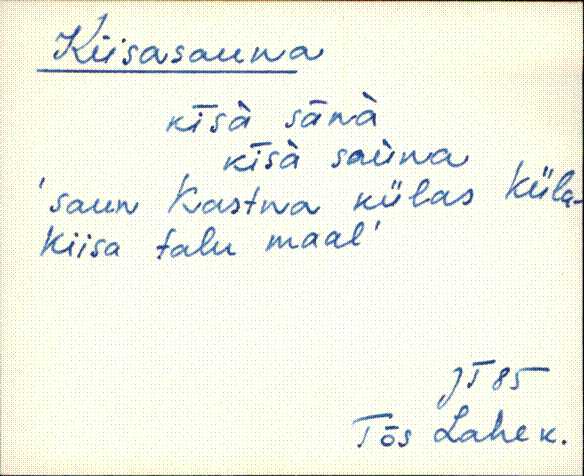 Kiisasauna
kīsà sānà
kīsà saùna
'saun Kastna külas Küla-
kiisa talu maal'
JT 85
Tõs Lahe k.